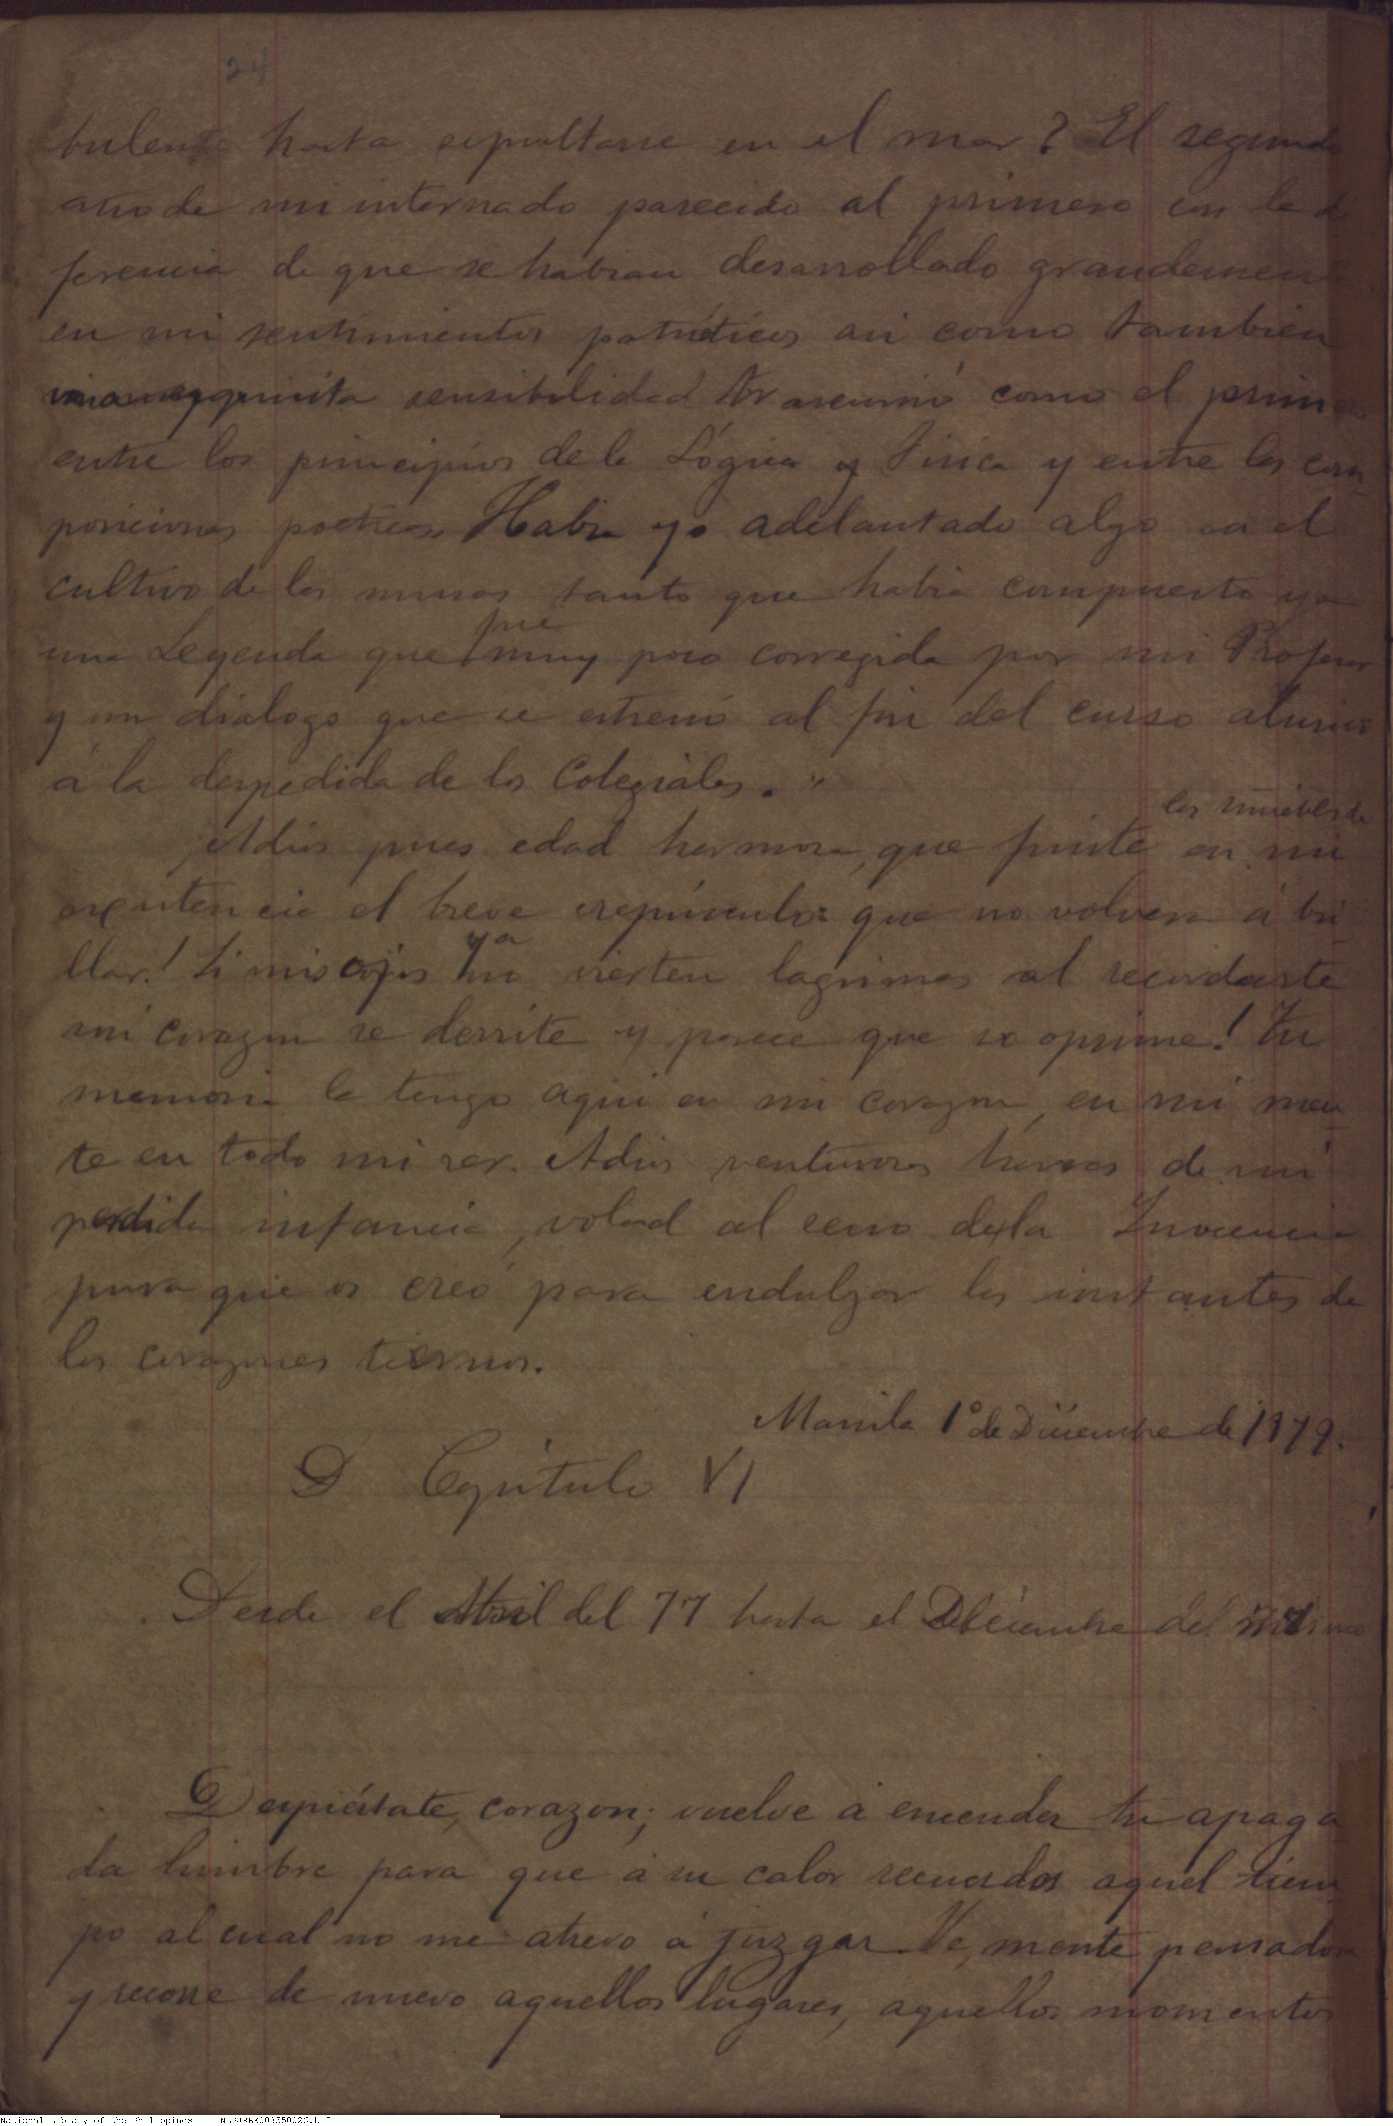 24
bulento hasta sepultarse en el mar? El segundo
año de mi internado parecido al primero con la di
ferencia de que se habian desarrollado grandemente
en mi sentimientos patrióticos asi como tambien
una exquisita sensibilidad trascurrió como el primero
entre los principios de la Lógica y Fisica y entre las com-
posiciones poeticas. Habia yo adelantado algo en el
cultivo de las musas tanto que habia compuesto ya
fue
una Leyenda que muy poco corregida por mi Profesor
y un dialogo que se estrenó al fin del curso alusivo
á la despedida de los Colegiales."
Adios pues edad hermosa, que fuiste en mi
existencia el breve crepúsculo que no volverá á bri-
ya
llar! Si mis ojos no vierten lagrimas al recordarte
mi corazon se derrite y parece que se oprime! Tu
memoria la tengo aqui en mi corazon, en mi men-
te en todo mi ser. Adios venturosas horas de mi
perdida infancia, volad al seno de la Inocencia
pura que os creó para endulzar los instantes de
los corazones tiernos.
Manila 1º de Diciembre de 1879.
Capítulo VI
Desde el Abril del 77 hasta el Diciembre del mismo
Despiértate, corazon; vuelve á encender tu apaga
da lumbre para que á su calor recuerdes aquel tiem
po al cual no me atrevo á juzgar. Ve, mente pensadora
y recorre de nuevo aquellos lugares, aquellos momentos
National Library of the Philippines